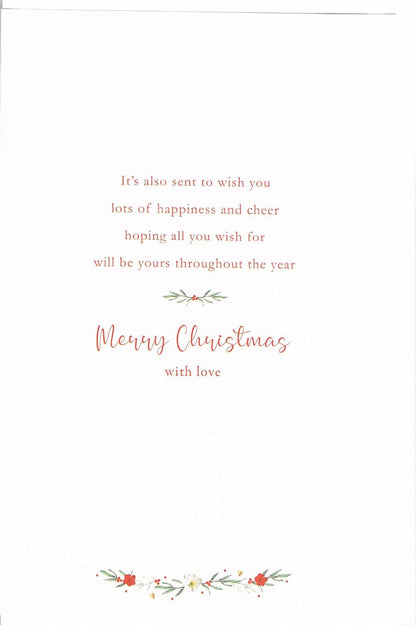 It's also sent to wish you
lots of happiness and cheer
hoping all you wish for
will be yours throughout the year
Merry Christmas
with love